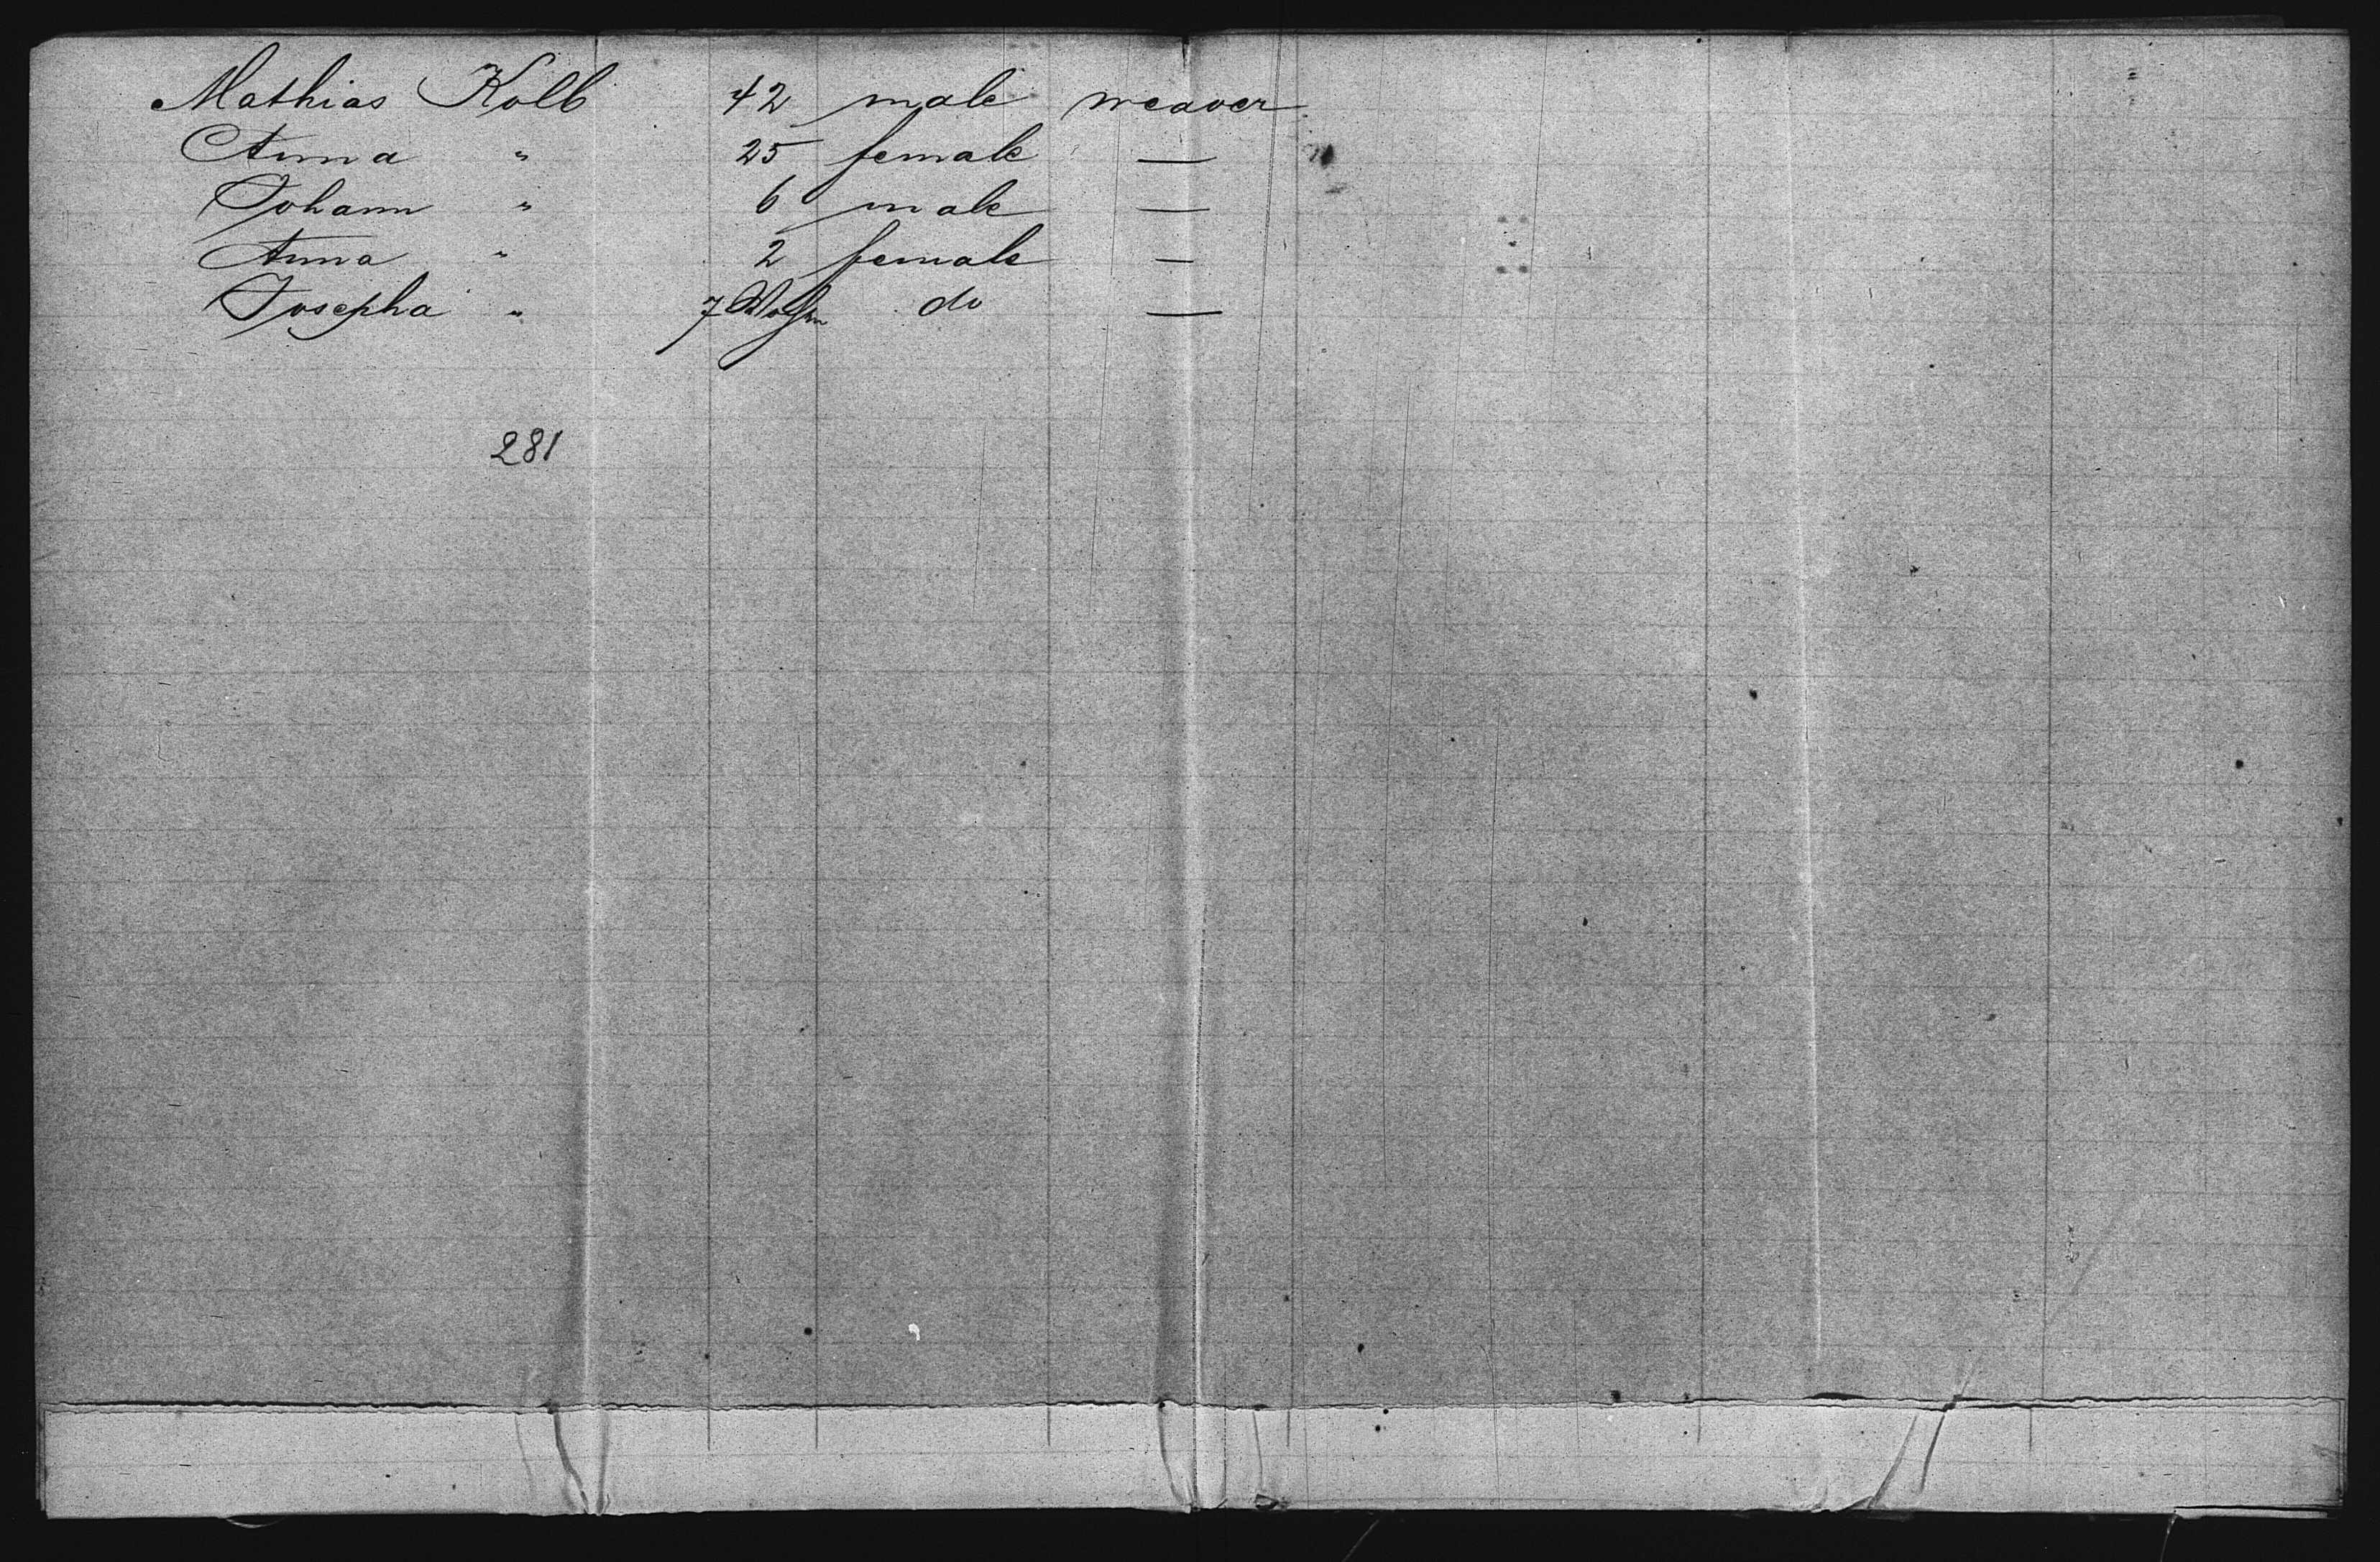 Mathias Kolb 42 male weaver
Anna " 25 female —
Johann " 6 male —
Anna " 2 female —
Josepha " 7 Wochen do —
281